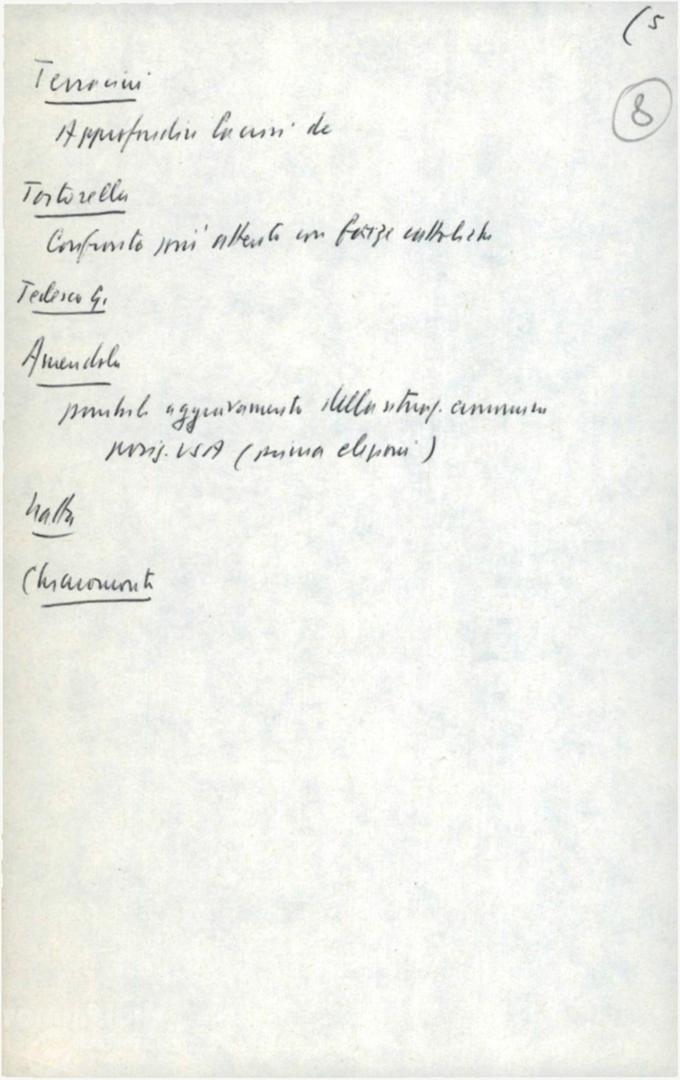 (5
8
Terracini
Approfondire la crisi dc
Tortorella
Confronto più attento con forze cattoliche
Tedesco G.
Amendola
possibile aggravamento della situaz. economica
posiz. USA (prima elezioni)
Natta
Chiaromonte